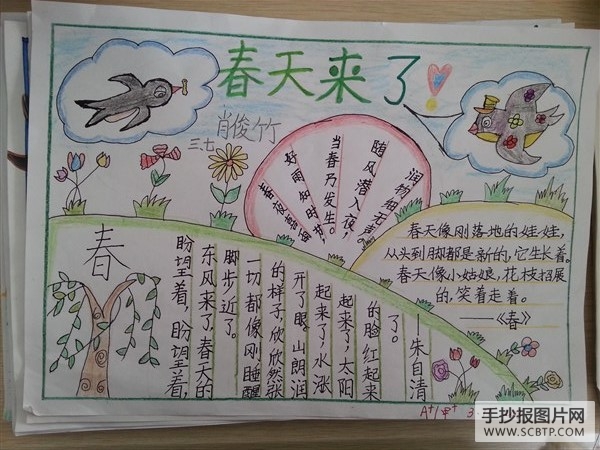 春天来了
三七 肖俊竹
春夜喜雨
好雨知时节,
当春乃发生。
随风潜入夜,
润物细无声。
春
盼望着,盼望着,
东风来了,春天的
脚步近了。
一切都像刚睡醒
的样子,欣欣然张
开了眼。山朗润
起来了,水涨
起来了,太阳
的脸红起来
了。
——朱自清
春天像刚落地的娃娃,
从头到脚都是新的,它生长着。
春天像小姑娘,花枝招展
的,笑着走着。
——《春》
A+/甲+
手抄报图片网
WWW.SCBTP.COM